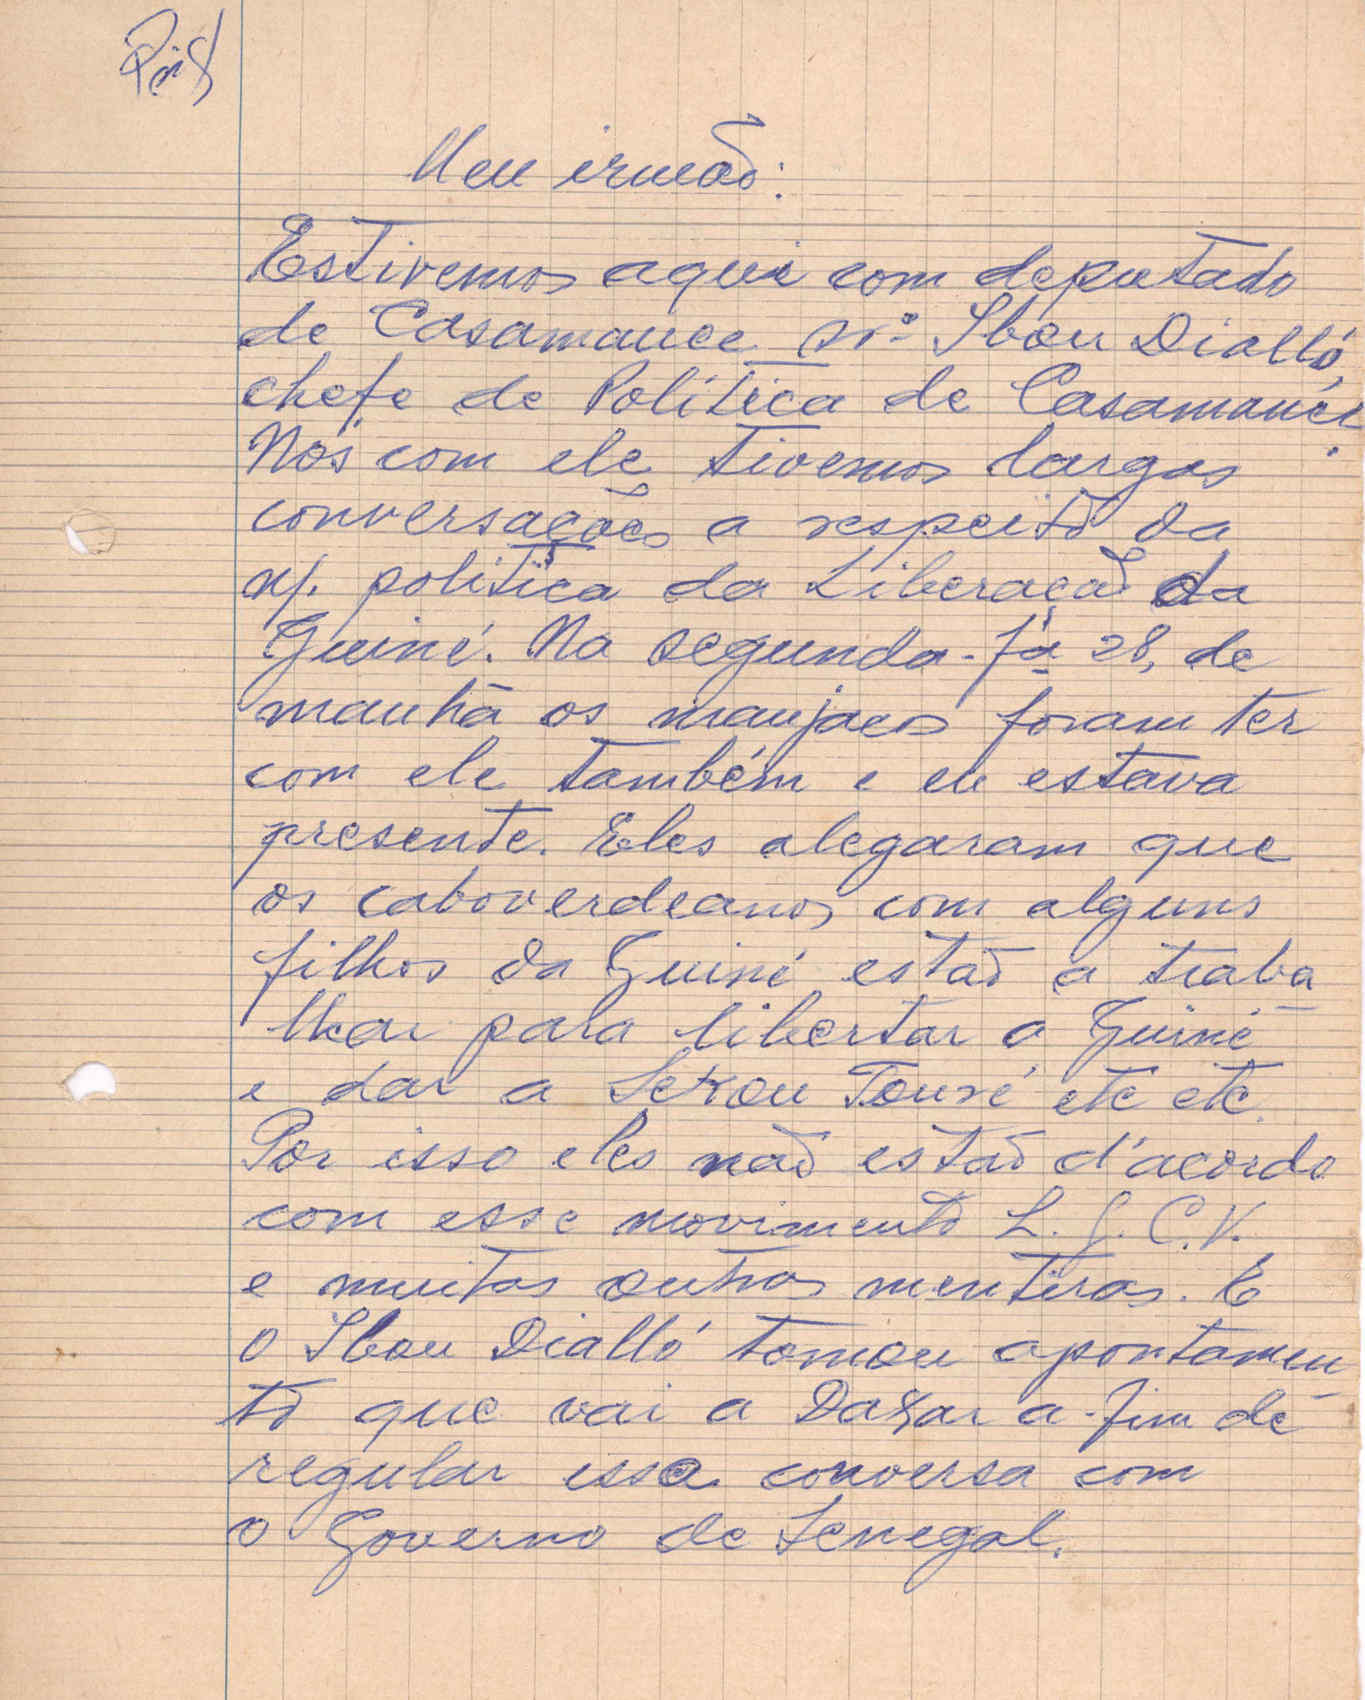 Meu irmão:
Estivemos aqui com deputado
de Casamance sr. Ibou Dialló,
chefe de Política de Casamance.
Nós com ele tivemos largas
conversações a respeito da
n/. politica da Liberação da
Guiné. Na segunda-fª 28, de
manhã os manjacos foram ter
com ele também e eu estava
presente. Eles alegaram que
os caboverdeanos com alguns
filhos da Guiné estão a traba
lhar para libertar a Guiné
e dar a Sekou Touré etc etc.
Por isso eles não estão d'acordo
com esse movimento L. G. C. V.
e muitas outras mentiras. E
o Ibou Dialló tomou apontamen
to que vai a Dakar a-fim de
regular essa conversa com
o Governo de Senegal.